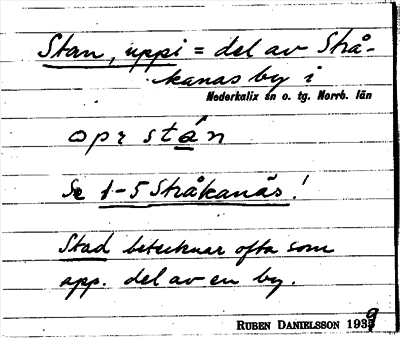 Stan, uppi = del av Strå-
kanäs by i
Nederkalix sn o. tg. Norrb. län
opr stán
Se 1-5 Stråkanäs!
Stad betecknar ofta som
app. del av en by.
RUBEN DANIELSSON 1939